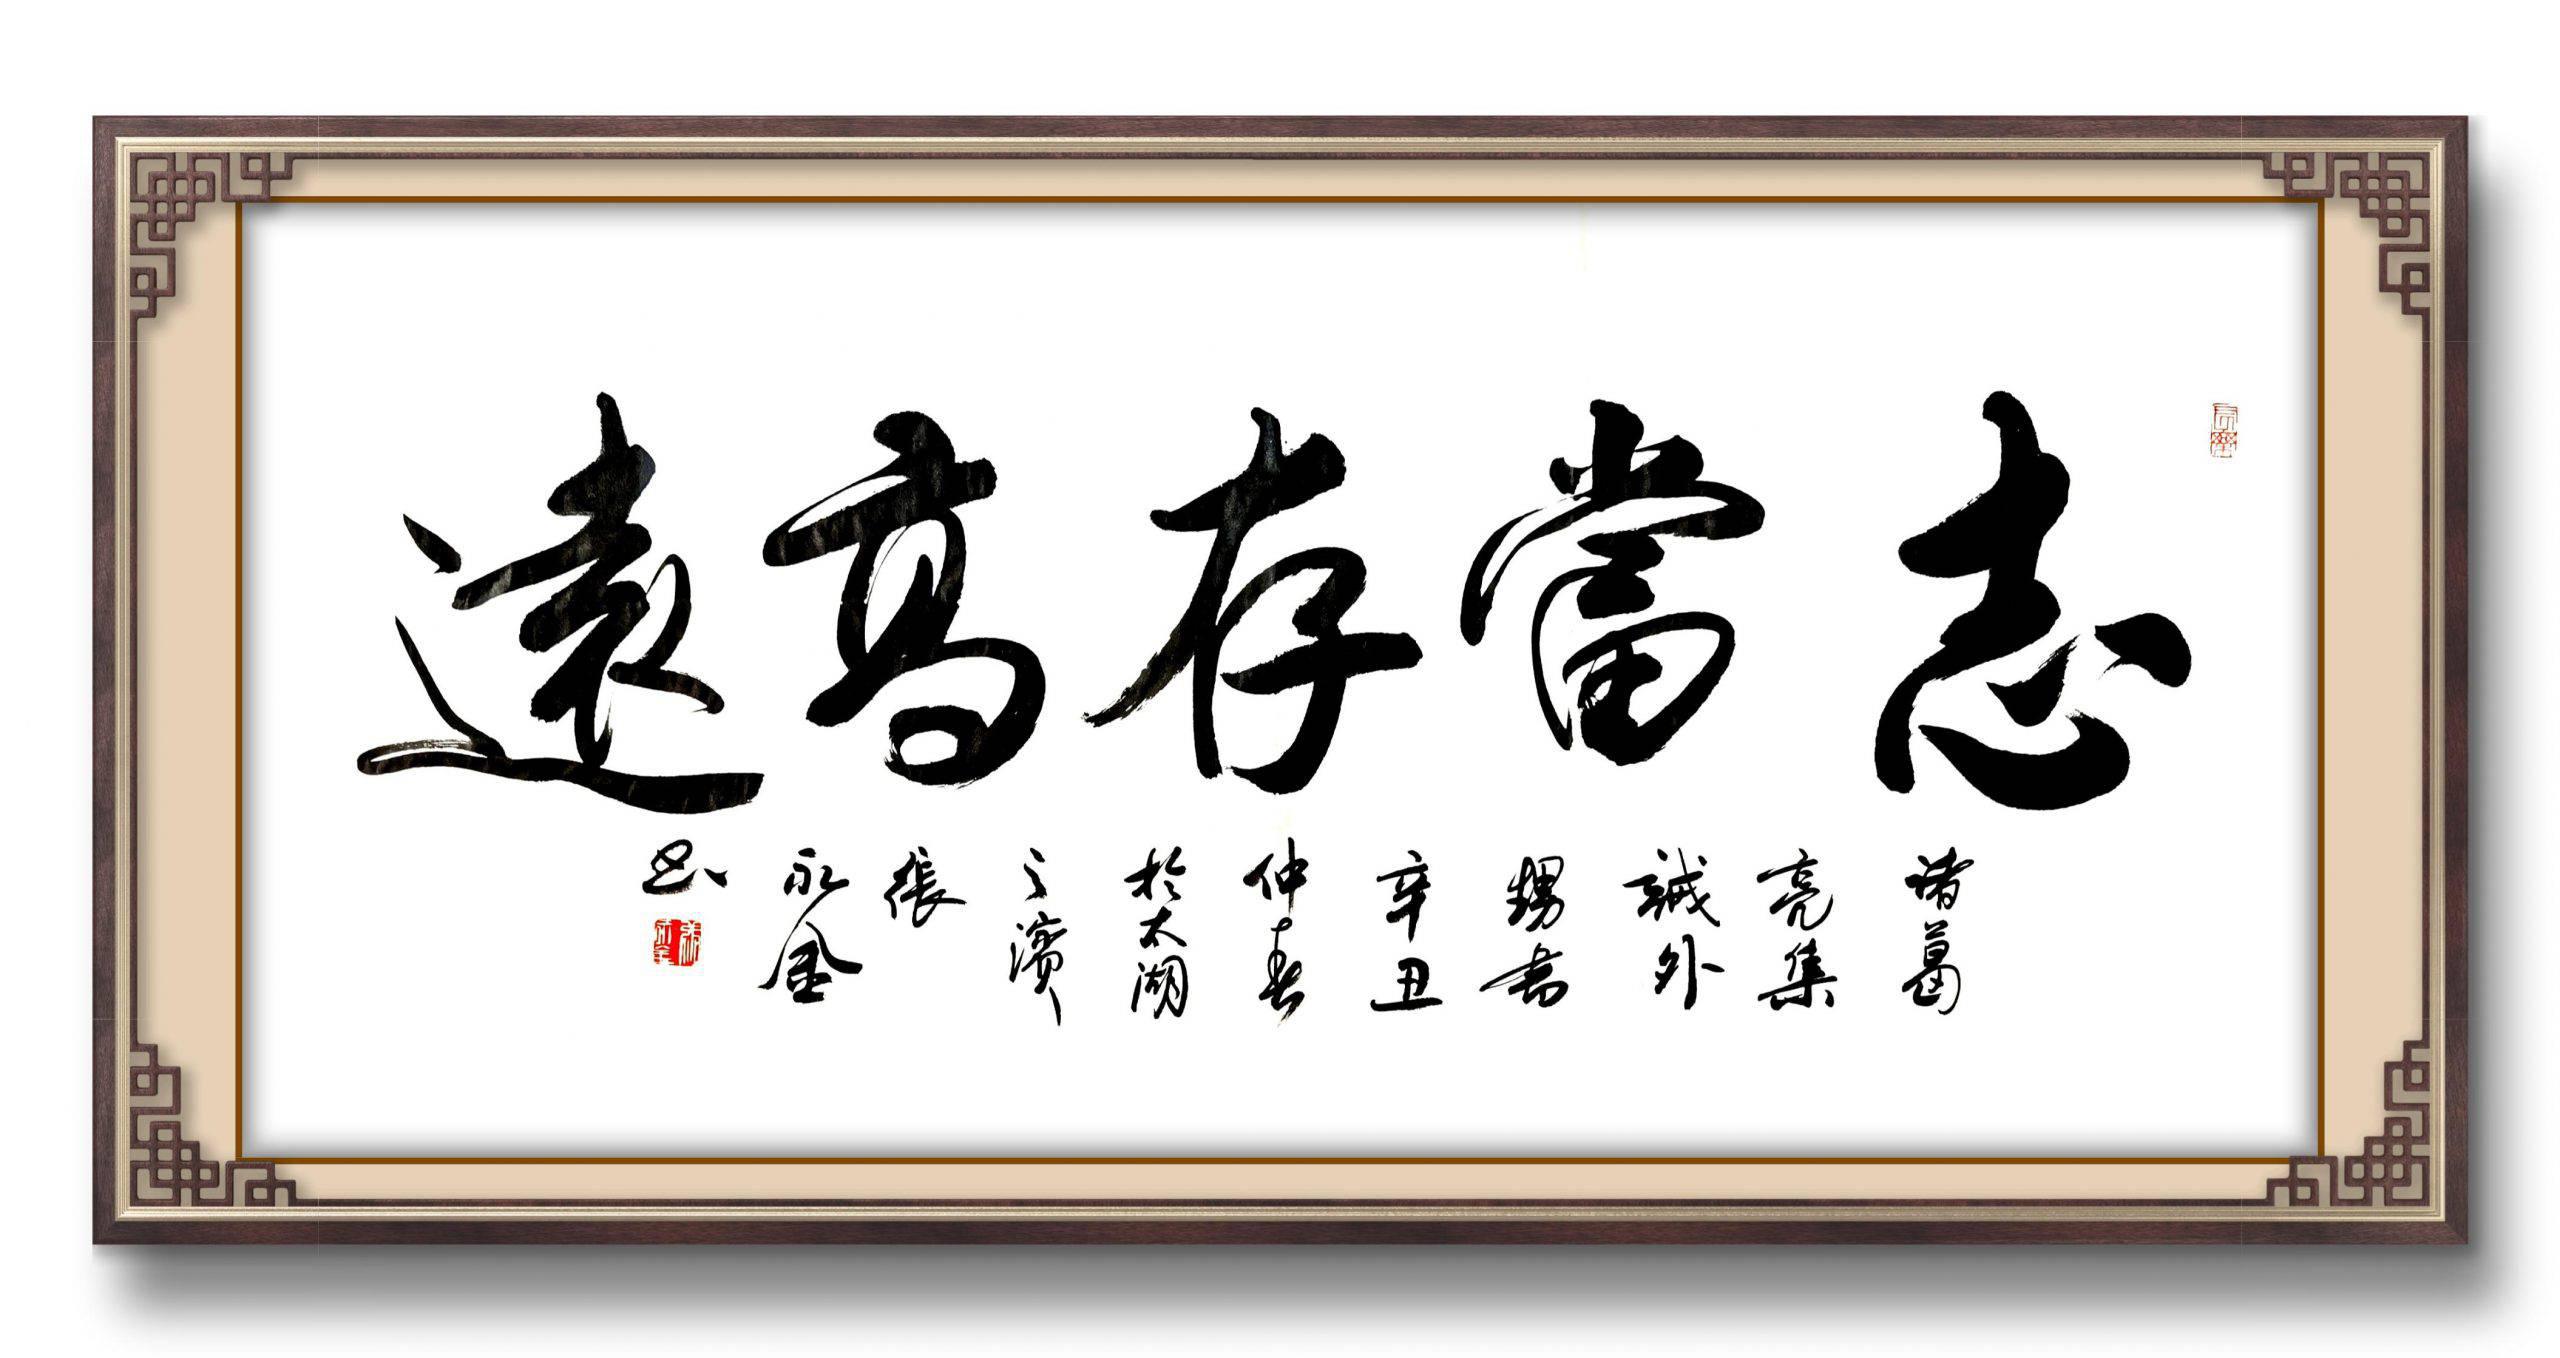 志當存高遠
諸葛
亮集
誡外
甥書
辛丑
仲春
於太湖
之濱
張
永金
書